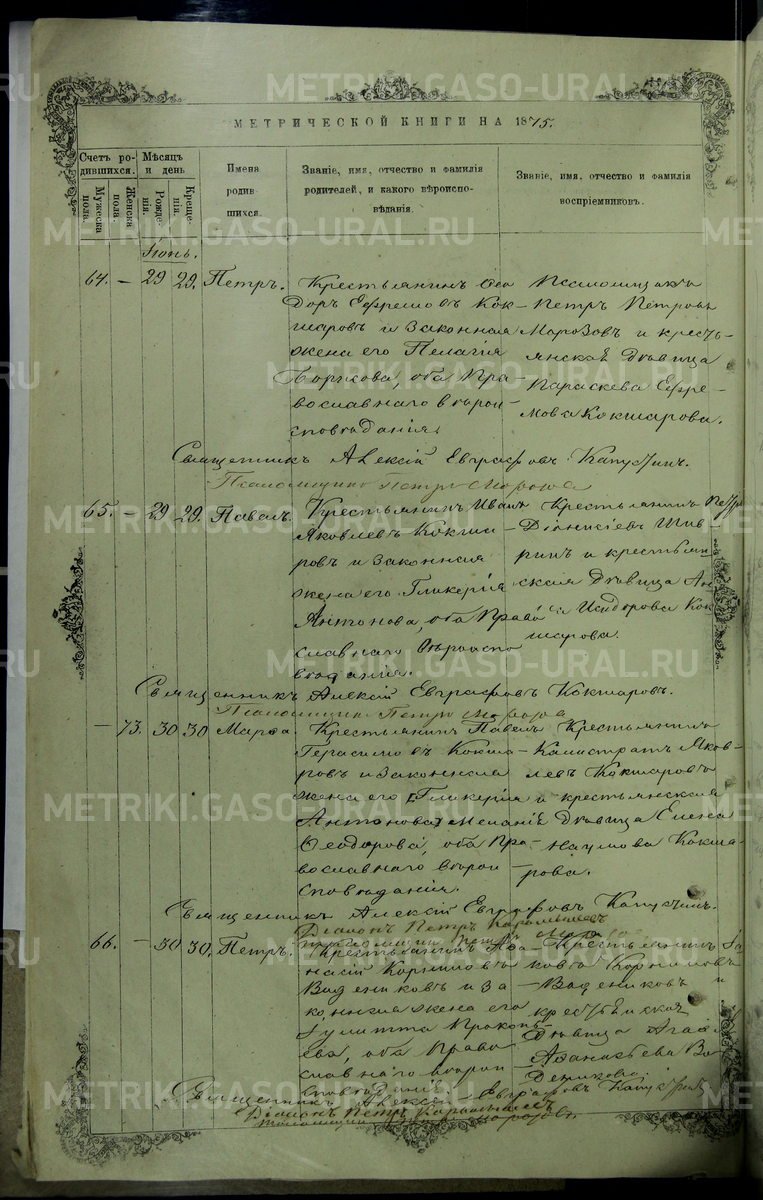 МЕТРИЧЕСКОЙ КНИГИ НА 1875.
Счетъ родившихся.
Мужеска пола.
Женска пола.
Мѣсяцъ и день
Рожденія.
Крещенія.
Имена родившихся.
Званіе, имя, отчество и фамилія родителей, и какого вѣроисповѣданія.
Званіе, имя, отчество и фамилія воспріемниковъ.
Іюнь.
64. — 29 29. Петръ.
Крестьянинъ Ѳео
доръ Ефремовъ Кок-
шаровъ и законная
жена его Пелагія
Борисова, оба пра-
вославнаго вѣрои
сповѣданія.
Псаломщикъ
Петръ Петровъ
Морозовъ и кресть-
янская дѣвица
Параскева Ефре-
мова Кокшарова.
Священникъ Алексій Евграфовъ Капустинъ.
Псаломщикъ Петръ Морозов
65. — 29 29. Павелъ.
Крестьянинъ Иванъ
Яковлевъ Кокша
ровъ и законная
жена его Гликерія
Антонова, оба право
славнаго вѣроиспо
вѣданія.
Крестьянинъ Петръ
Діонисіевъ
и крестьян
ская дѣвица Ан
на Исидорова Кок
шарова.
Священникъ Алексій Евграфовъ Кокшаровъ.
Псаломщикъ Петръ Морозов
— 73. 30 30 Марѳа.
Крестьянинъ Павелъ
Герасимовъ Кокша-
ровъ и законная
жена его [Гликерія
Антонова] Меланія
Ѳеодорова, оба пра-
вославнаго вѣрои
сповѣданія.
Крестьянинъ
Калистратъ Яков-
левъ Кокшаровъ
и крестьянская
дѣвица Елена
Наумова Кокша-
рова.
Священникъ Алексій Евграфовъ Капустинъ.
Діаконъ Петръ
Псаломщикъ Петръ
66. — 30 30. Петръ.
Крестьянинъ Аѳа-
насій Корниловъ
Вадениковъ и за-
конная жена его
Іулитта Прокопь-
ева, оба право
славнаго вѣрои
сповѣданія.
Крестьянинъ Іа
ковъ Корниловъ
Ваденниковъ и
крестьянская
дѣвица Агаѳ
Аѳанасьева Ва
деникова.
Священникъ Алексій Евграфовъ Капустинъ
Діаконъ Петръ
METRIKI.GASO-URAL.RU